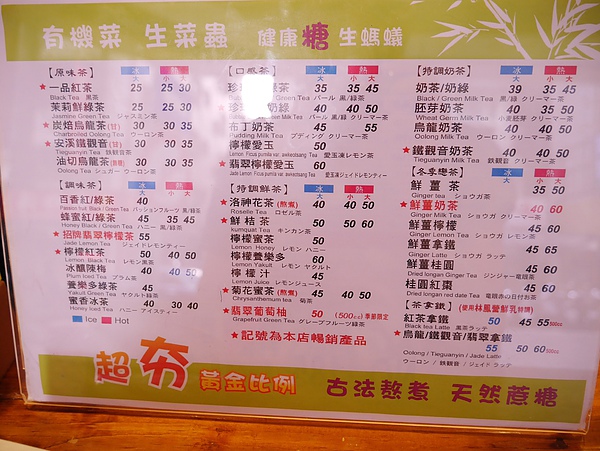 有機菜 生菜蟲 健康糖生螞蟻
【原味茶】 冰 大 熱 小 大
★一品紅茶 25 25 30
Black Tea 黒茶
茉莉鮮綠茶 25 25 30
Jasmine Green Tea ジャスミン茶
★炭焙烏龍茶(甘) 30 30 35
Oolong Tea ウーロン茶
★安溪鐵觀音(甘) 30 30 35
Tieguanyin Tea 鉄観音茶
油切烏龍茶 30 35
Oolong Tea シュガー ウーロン茶
【調味茶】 冰 大 熱 小 大
百香紅/綠茶 40
蜂蜜紅/綠茶 45 35 45
Honey Black / Green Tea ハニー 黒/緑茶
★招牌翡翠檸檬茶 55
Jade Lemon Tea ジェイドレモンティー
★檸檬紅茶 50 40 50
Lemon Black Tea レモン黒茶
冰釀陳梅 40 40 50
Plum Iced Tea プラム茶
養樂多綠茶 45
Yakult Green Tea ヤクルト緑茶
蜜香冰茶 40 30 40
Honey Iced Tea ハニー アイスティー
Ice Hot
【口感茶】 冰 大 熱 小 大
35 35 45 50
40 40 50
布丁奶茶 45 55
Pudding Milk Tea プディング クリーマー茶
檸檬愛玉 50
愛玉凍レモン茶
★翡翠檸檬愛玉 60
愛玉凍ジェイドレモンティー
【特調鮮茶】 冰 大 熱 小 大
★洛神花茶(熬煮) 40 40 50
Roselle Tea ロゼル茶
★鮮桔茶 50 50 60
kumquat Tea キンカン茶
檸檬蜜 50
Lemon Honey レモン ハニー
檸檬養樂多 60
Lemon Yakult レモン ヤクルト
檸檬汁 45
Lemon Juice レモンジュース
★菊花蜜茶(熬煮) 45 40 50
Chrysanthemum tea 菊茶
★翡翠葡萄柚 50 (500cc)季節限定
Grapefruit Green Tea グレープフルーツ緑茶
★記號為本店暢銷產品
【特調奶茶】 冰 大 熱 小 大
奶茶/奶綠 39 35 45
Black / Green Milk Tea 黒/緑 クリーマー茶
胚芽奶茶 40 35 50
Wheat Germ Milk Tea 小麦胚芽 クリーマー茶
烏龍奶茶 40 40 50
Oolong Milk Tea ウーロン クリーマー茶
★鐵觀音奶茶 40 40 50
Tieguanyin Milk Tea 鉄観音 クリーマー茶
【冬季戀茶】 冰 大 熱 小 大
鮮薑茶 35 50
Ginger tea ショウガ茶
★鮮薑奶茶 40 60
Ginger Milk Tea ショウガ クリーマー茶
鮮薑檸檬 40 60
Ginger Lemon Tea ショウガ レモン茶
鮮薑拿鐵 45 65
Ginger Latte ショウガ ラテ
鮮薑桂圓 40 60
Dried longan Ginger Tea ジンジャー竜眼茶
桂圓紅棗 40 60
Dried longan red date Tea 竜眼赤の日付お茶
【茶拿鐵】(使用林鳳營鮮乳鮮調)
紅茶拿鐵 50 45 55 500cc
Black tea Latte 黒茶ラッテ
★烏龍/鐵觀音/翡翠拿鐵
55 50 60 500cc
Oolong / Tieguanyin / Jade Latte
ウーロン / 鉄観音 / ジェイド ラッテ
超夯 黃金比例 古法熬煮 天然蔗糖